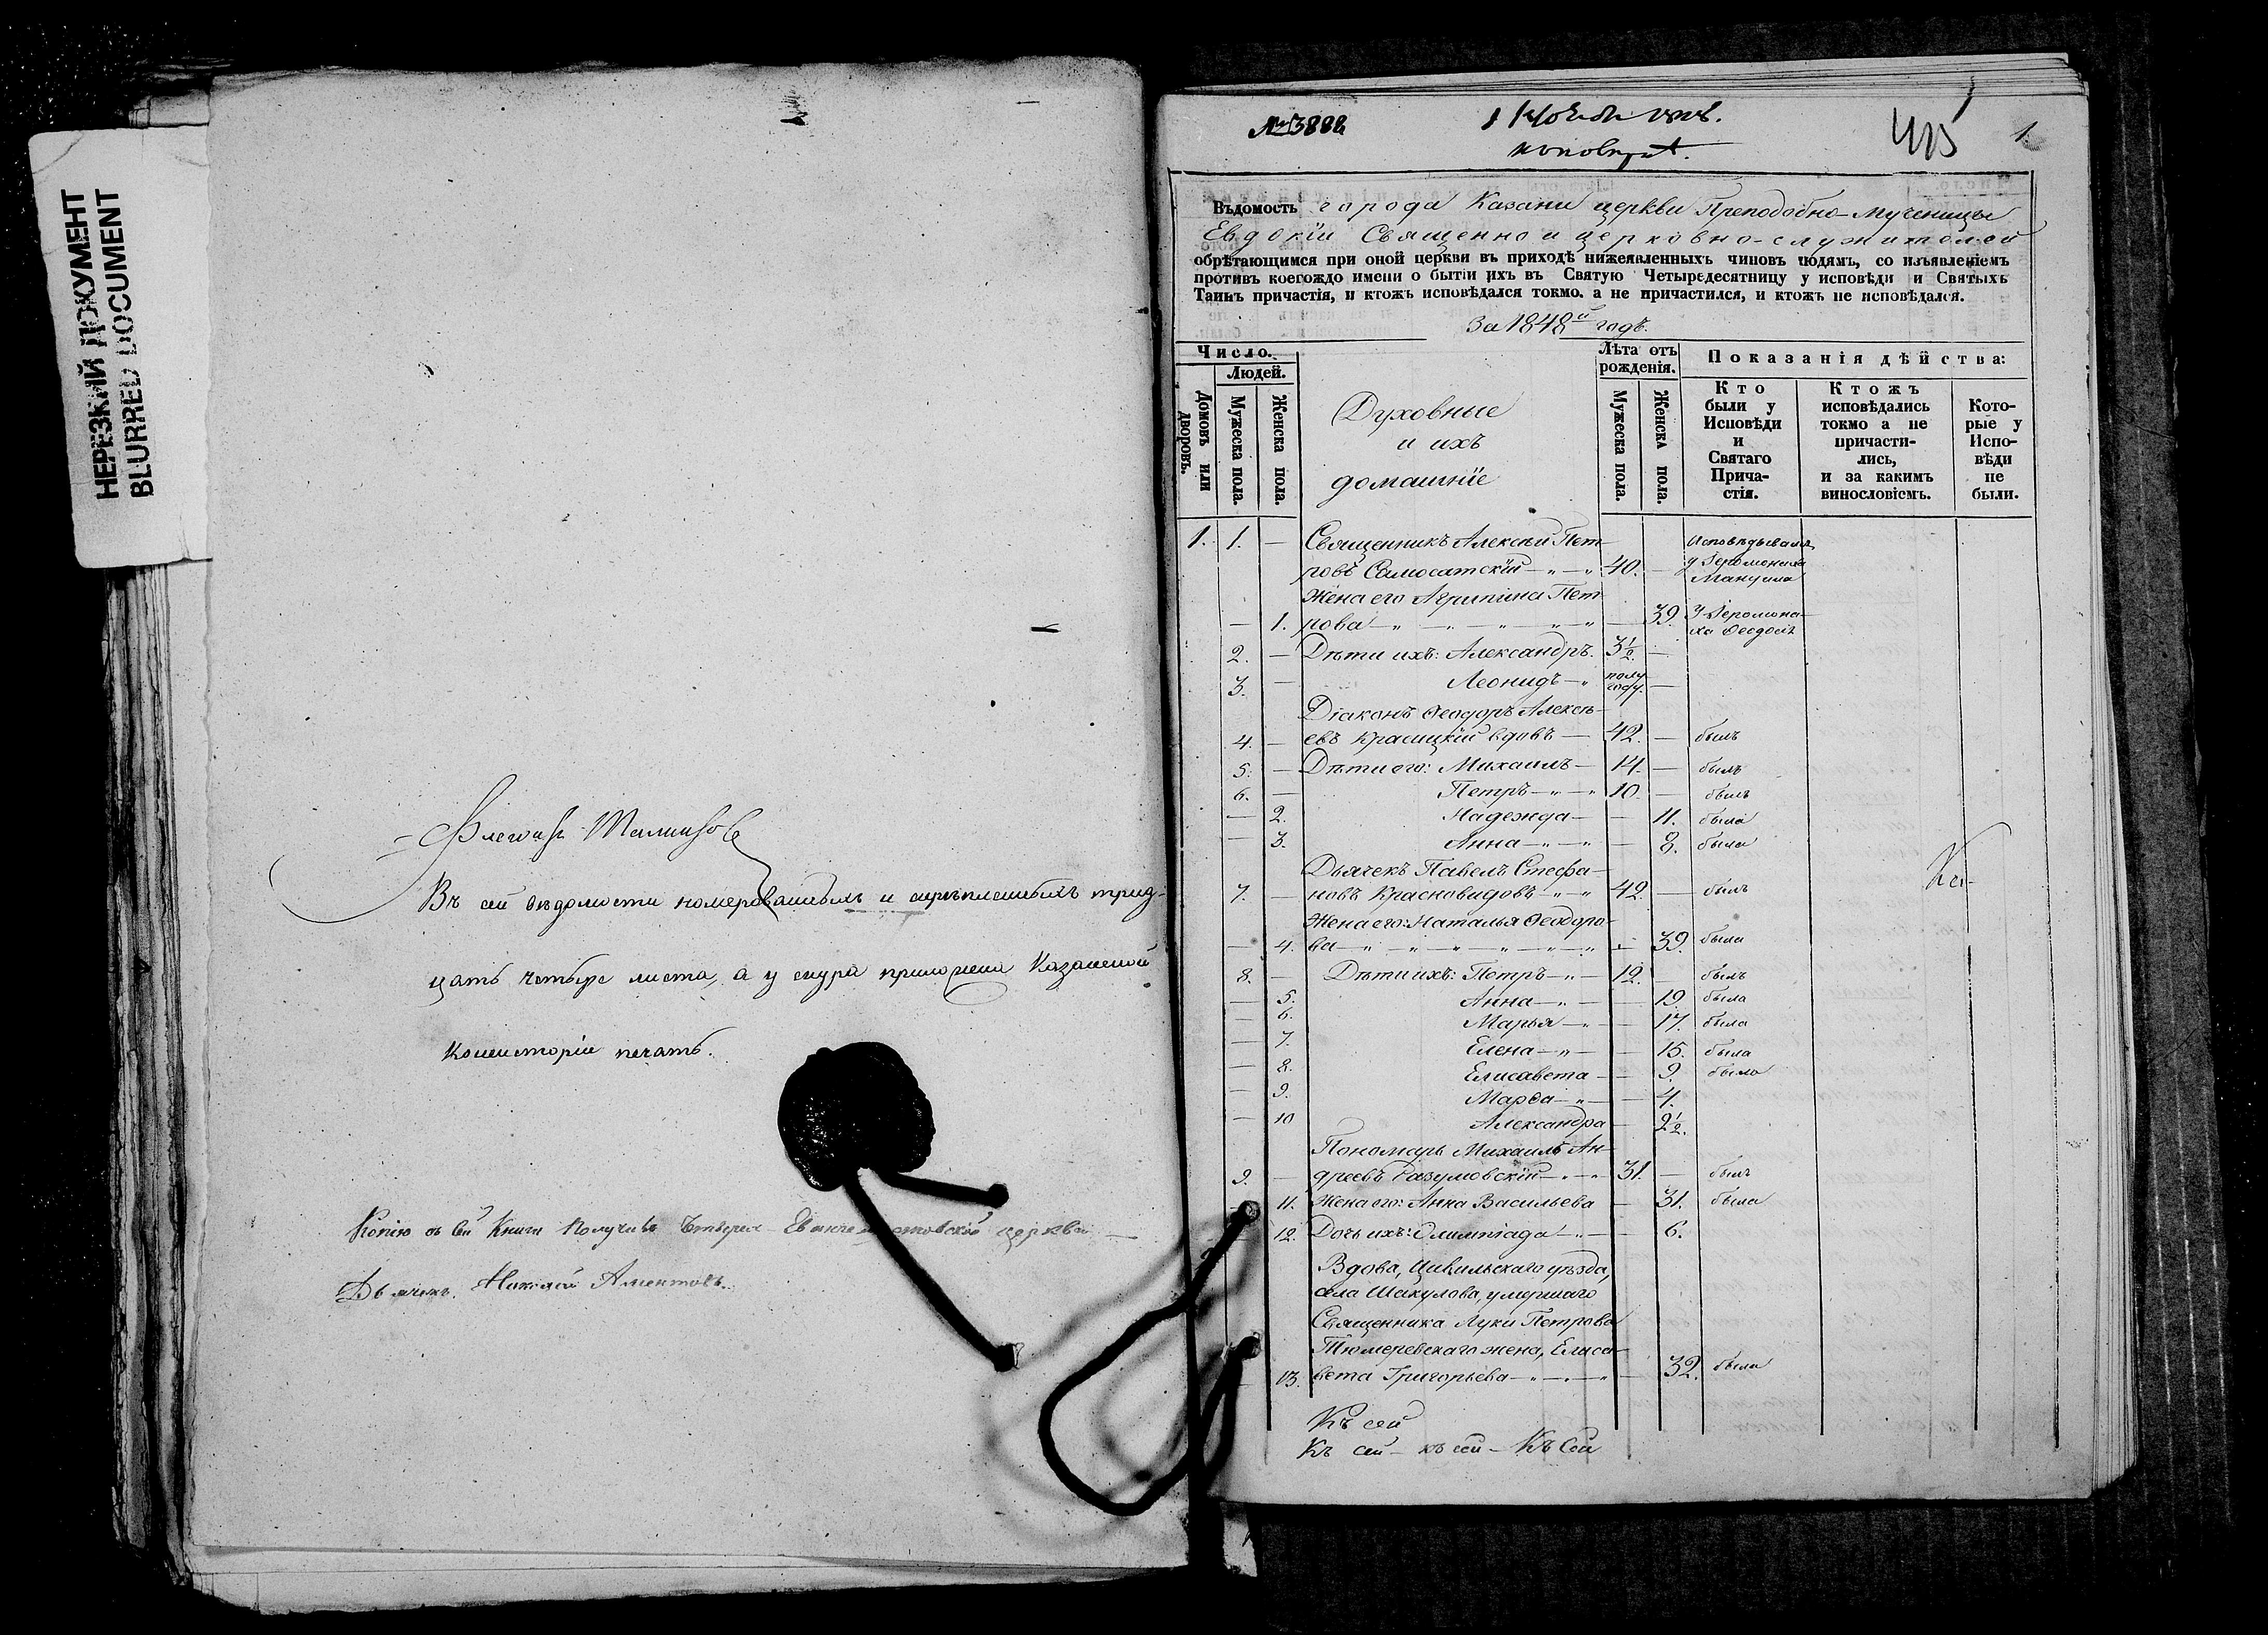 НЕРЕЗКИЙ ДОКУМЕНТ
BLURRED DOCUMENT
Въ сей вѣдомости номерованныхъ и скрѣпленныхъ трид-
цать четыре листа, а у снура приложена Казанской
Консисторіи печать.
Копію съ сей Книги Получилъ церкви
Дьячекъ Николай
№ 3888
415
1.
Вѣдомость города Казани церкви Преподобно-Мученицы
Евдокіи Священно и церковно-служителей
обрѣтающимся при оной церкви въ приходѣ нижеявленныхъ чиновъ людямъ, со изъявленіемъ
противъ коегождо имени о бытіи ихъ въ Святую Четыредесятницу у исповѣди и Святыхъ
Таинъ причастія, и ктожъ исповѣдался токмо. а не причастился, и ктожъ не исповѣдался.
За 1848й годъ.
Число.
Людей.
Домовъ или дворовъ.
Мужеска пола.
Женска пола.
Духовные
и ихъ
домашніе
Лѣта отъ
рожденія.
Мужеска пола.
Женска пола.
Показанія дѣйства:
Кто
были у
Исповѣди
и
Святаго
Прича-
стія.
Ктожъ
исповѣдались
токмо а не
причасти-
лись,
и за какимъ
винословіемъ.
Кото-
рые у
Испо-
вѣди
не
были.
1. 1. — Священникъ Алексѣй Пет-
ровъ Самосатскій — " — " 40. — Исповѣдывался у Іеромонаха Мануила
Жена его Агрипина Пет-
— 1. рова — " — " — " — " — " — 39. У Іеромона-
ха Ѳеодосія
2. — Дѣти ихъ: Александръ. 3½. —
3. — Леонидъ — " полу году. —
Діаконъ Ѳеодоръ Алексѣ-
4. — евъ Красицкій вдовъ — 42. — былъ
5. — Дѣти его: Михаилъ — 14. — былъ
6. — Петръ — " — " 10. — былъ
— 2. Надежда — — 11. была
— 3. Анна — " — " — 8. была
Дьячекъ Павелъ Стефа-
7. — новъ Красновидовъ — " — " 42. — былъ
Жена его: Наталья Ѳеодоро-
— 4. ва — " — " — " — " — " — " — 39. была
8. — Дѣти ихъ: Петръ — " — 12. — былъ
— 5. Анна — " — — 19. была
6. Марья — " — 17. была
— 7. Елена — " — — 15. была
— 8. Елисавета — — 9. была
— 9. Марѳа — " — — 4.
— 10 Александра — 2½.
Пономарь Михаилъ Ан-
9. — дреевъ Разумовскій — " — " 31. — былъ
— 11. Жена его: Анна Васильева — 31. была
12. Дочь ихъ: Олимпіада — " — — 6.
Вдова, Цивильскаго уѣзда,
села Шакулова, умершаго
Священника Луки Петрова
Тюмеревскаго жена, Елиса-
— 13. вета Григорьева — " — " — " — 32. была
Къ сей
Къ сей — къ сей — Къ Сей